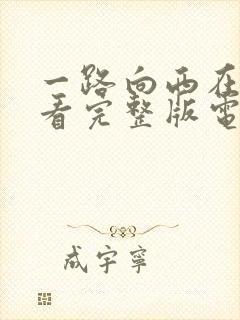 一路向西在
看完整版電
成宇寧